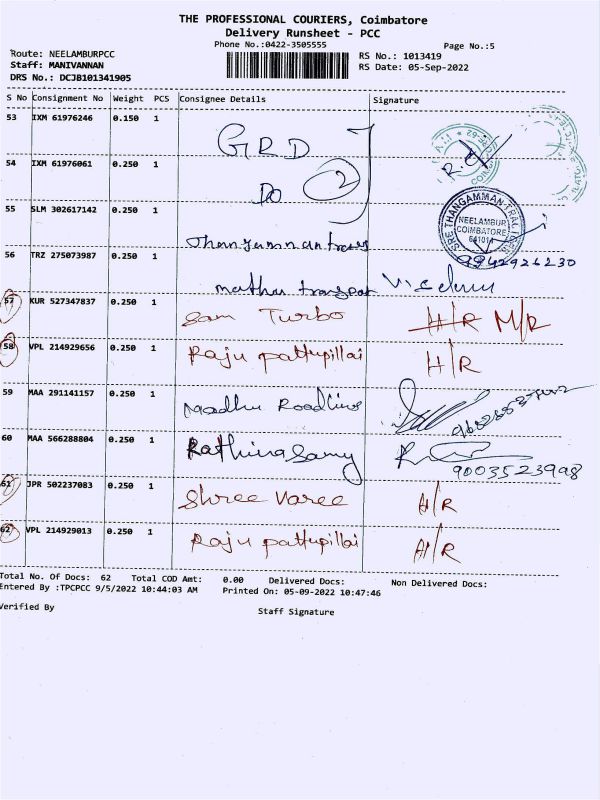 THE PROFESSIONAL COURIERS, Coimbatore
Delivery Runsheet - PCC
Phone No.:0422-3505555
Page No.:5
Route: NEELAMBURPCC
RS No.: 1013419
Staff: MANIVANNAN
RS Date: 05-Sep-2022
DRS No.: DCJB101341905
S No Consignment No Weight PCS Consignee Details Signature
53 IXM 61976246 0.150 1 GRD
54 IXM 61976061 0.250 1 DO 2
55 SLM 302617142 0.250 1
SREE THANGAMMAN
NEELAMBUR
COIMBATORE
641014
9942926230
56 TRZ 275073987 0.250 1
57 KUR 527347837 0.250 1 Sam Turbo H/R M/R
58 VPL 214929656 0.250 1 Raju pattupillai H/R
59 MAA 291141157 0.250 1 Madhu Roadlines
60 MAA 566288804 0.250 1 Rathinasamy
9003523998
61 JPR 502237083 0.250 1 Shree Varee H/R
62 VPL 214929013 0.250 1 Raju pattupillai H/R
Total No. Of Docs: 62 Total COD Amt: 0.00 Delivered Docs: Non Delivered Docs:
Entered By :TPCPCC 9/5/2022 10:44:03 AM Printed On: 05-09-2022 10:47:46
Verified By
Staff Signature